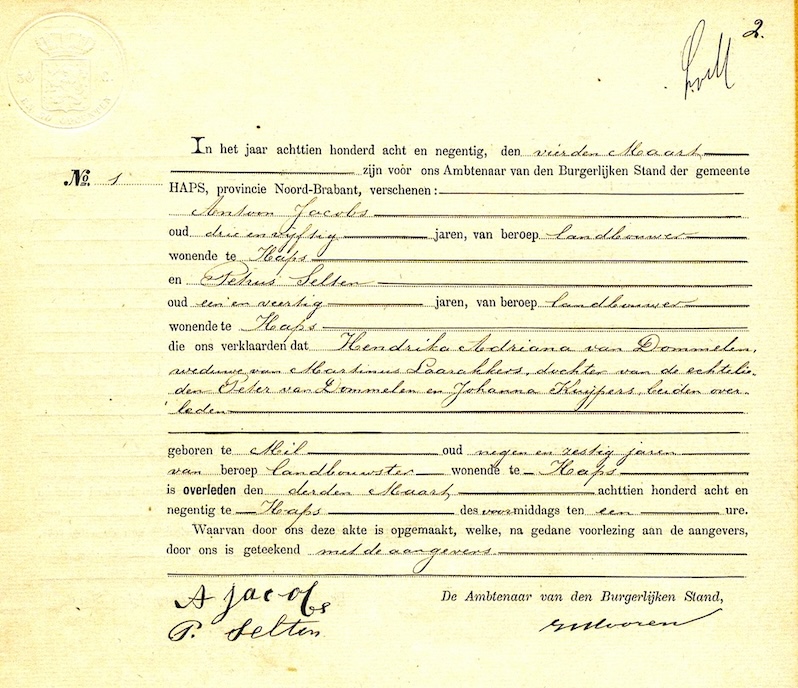 2.
In het jaar achttien honderd acht en negentig, den vierden Maart
No. 1 zijn voor ons Ambtenaar van den Burgerlijken Stand der gemeente
HAPS, provincie Noord-Brabant, verschenen:
Antoon Jacobs
oud drie en vijftig jaren, van beroep landbouwer
wonende te Haps
en Petrus Selten
oud een en veertig jaren, van beroep landbouwer
wonende te Haps
die ons verklaarden dat Hendrika Adriana van Dommelen,
weduwe van Martinus Laarakkers, dochter van de echtelie-
den Peter van Dommelen en Johanna Kuijpers, beiden over-
leden
geboren te Mil oud negen en zestig jaren
van beroep landbouwster wonende te Haps
is overleden den derden Maart achttien honderd acht en
negentig te Haps des voormiddags ten een ure.
Waarvan door ons deze akte is opgemaakt, welke, na gedane voorlezing aan de aangevers,
door ons is geteekend met de aangevers
A Jacobs De Ambtenaar van den Burgerlijken Stand,
P. Selten